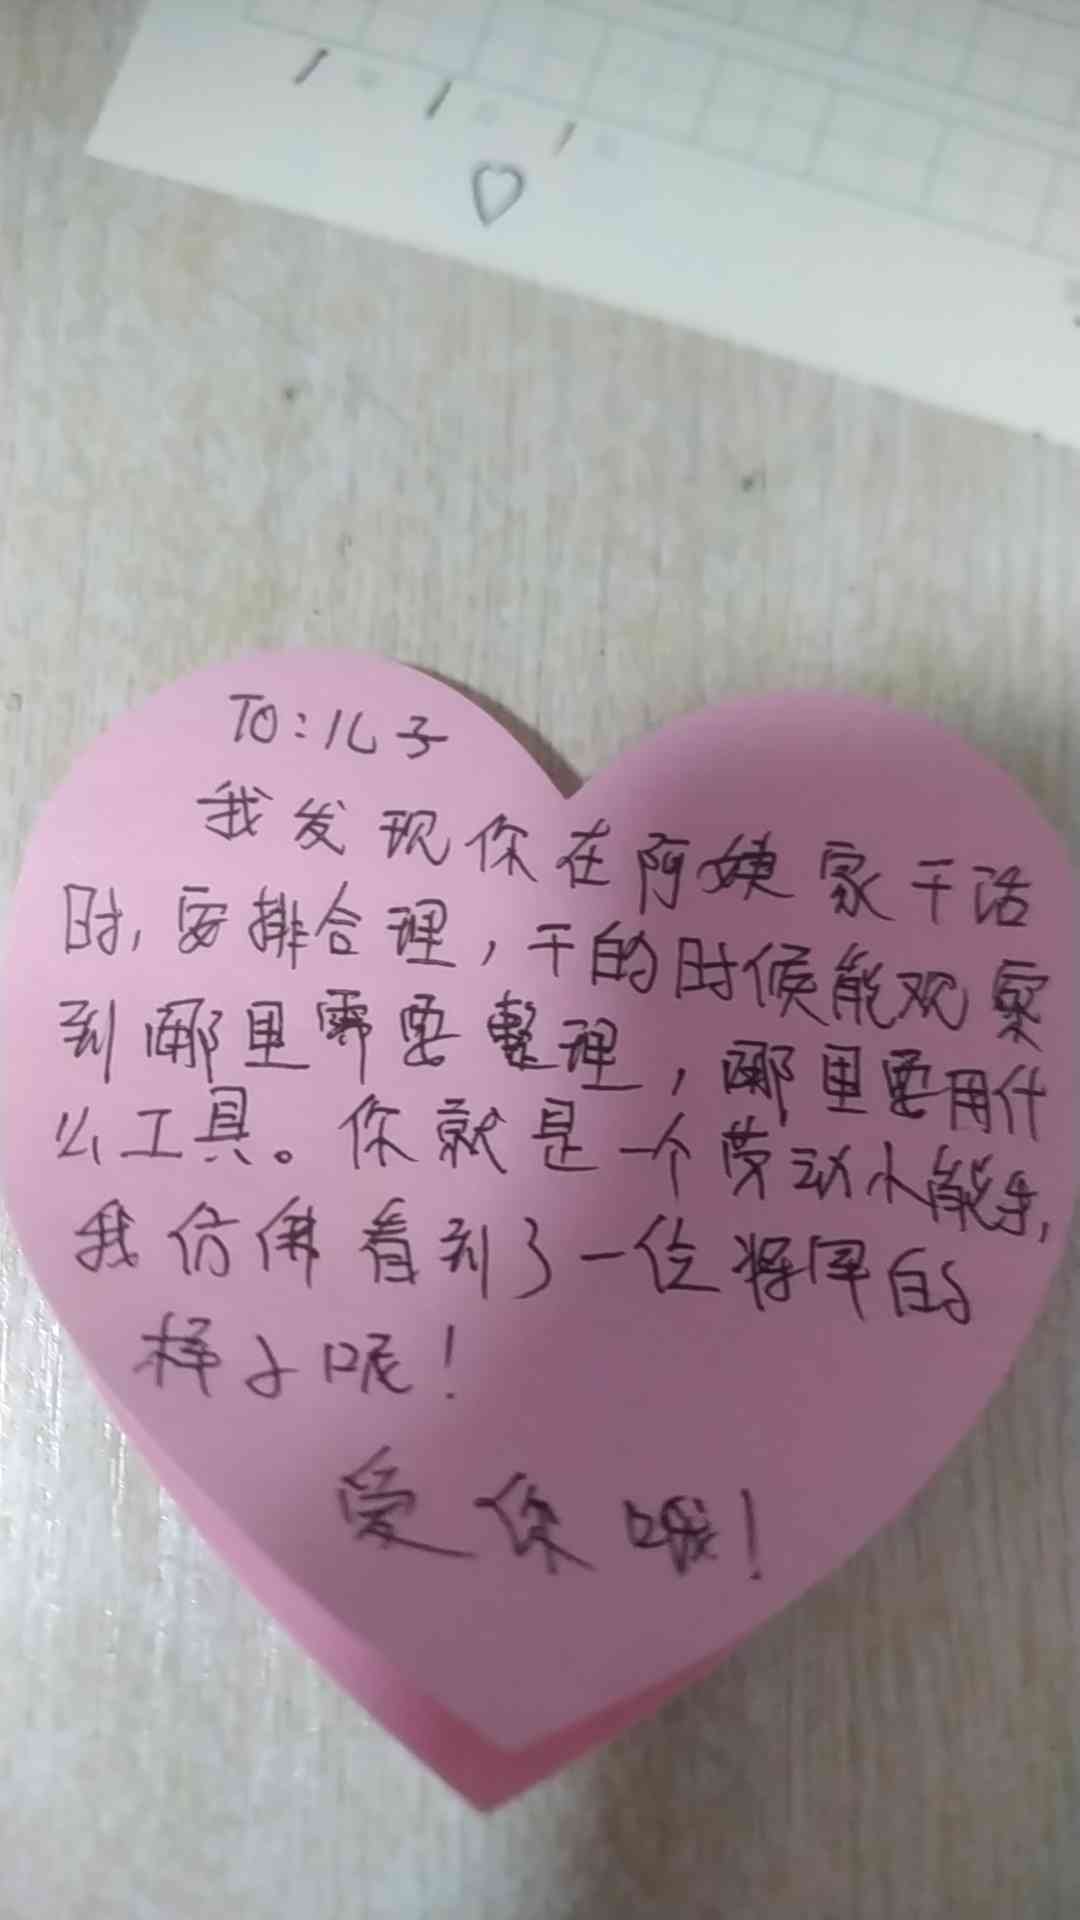 TO:儿子
我发现你在阿姨家干活
时,安排合理,干的时候能观察
到哪里需要整理,哪里要用什
么工具。你就是一个劳动小能手,
我仿佛看到了一位将军的
样子呢!
爱你哦!